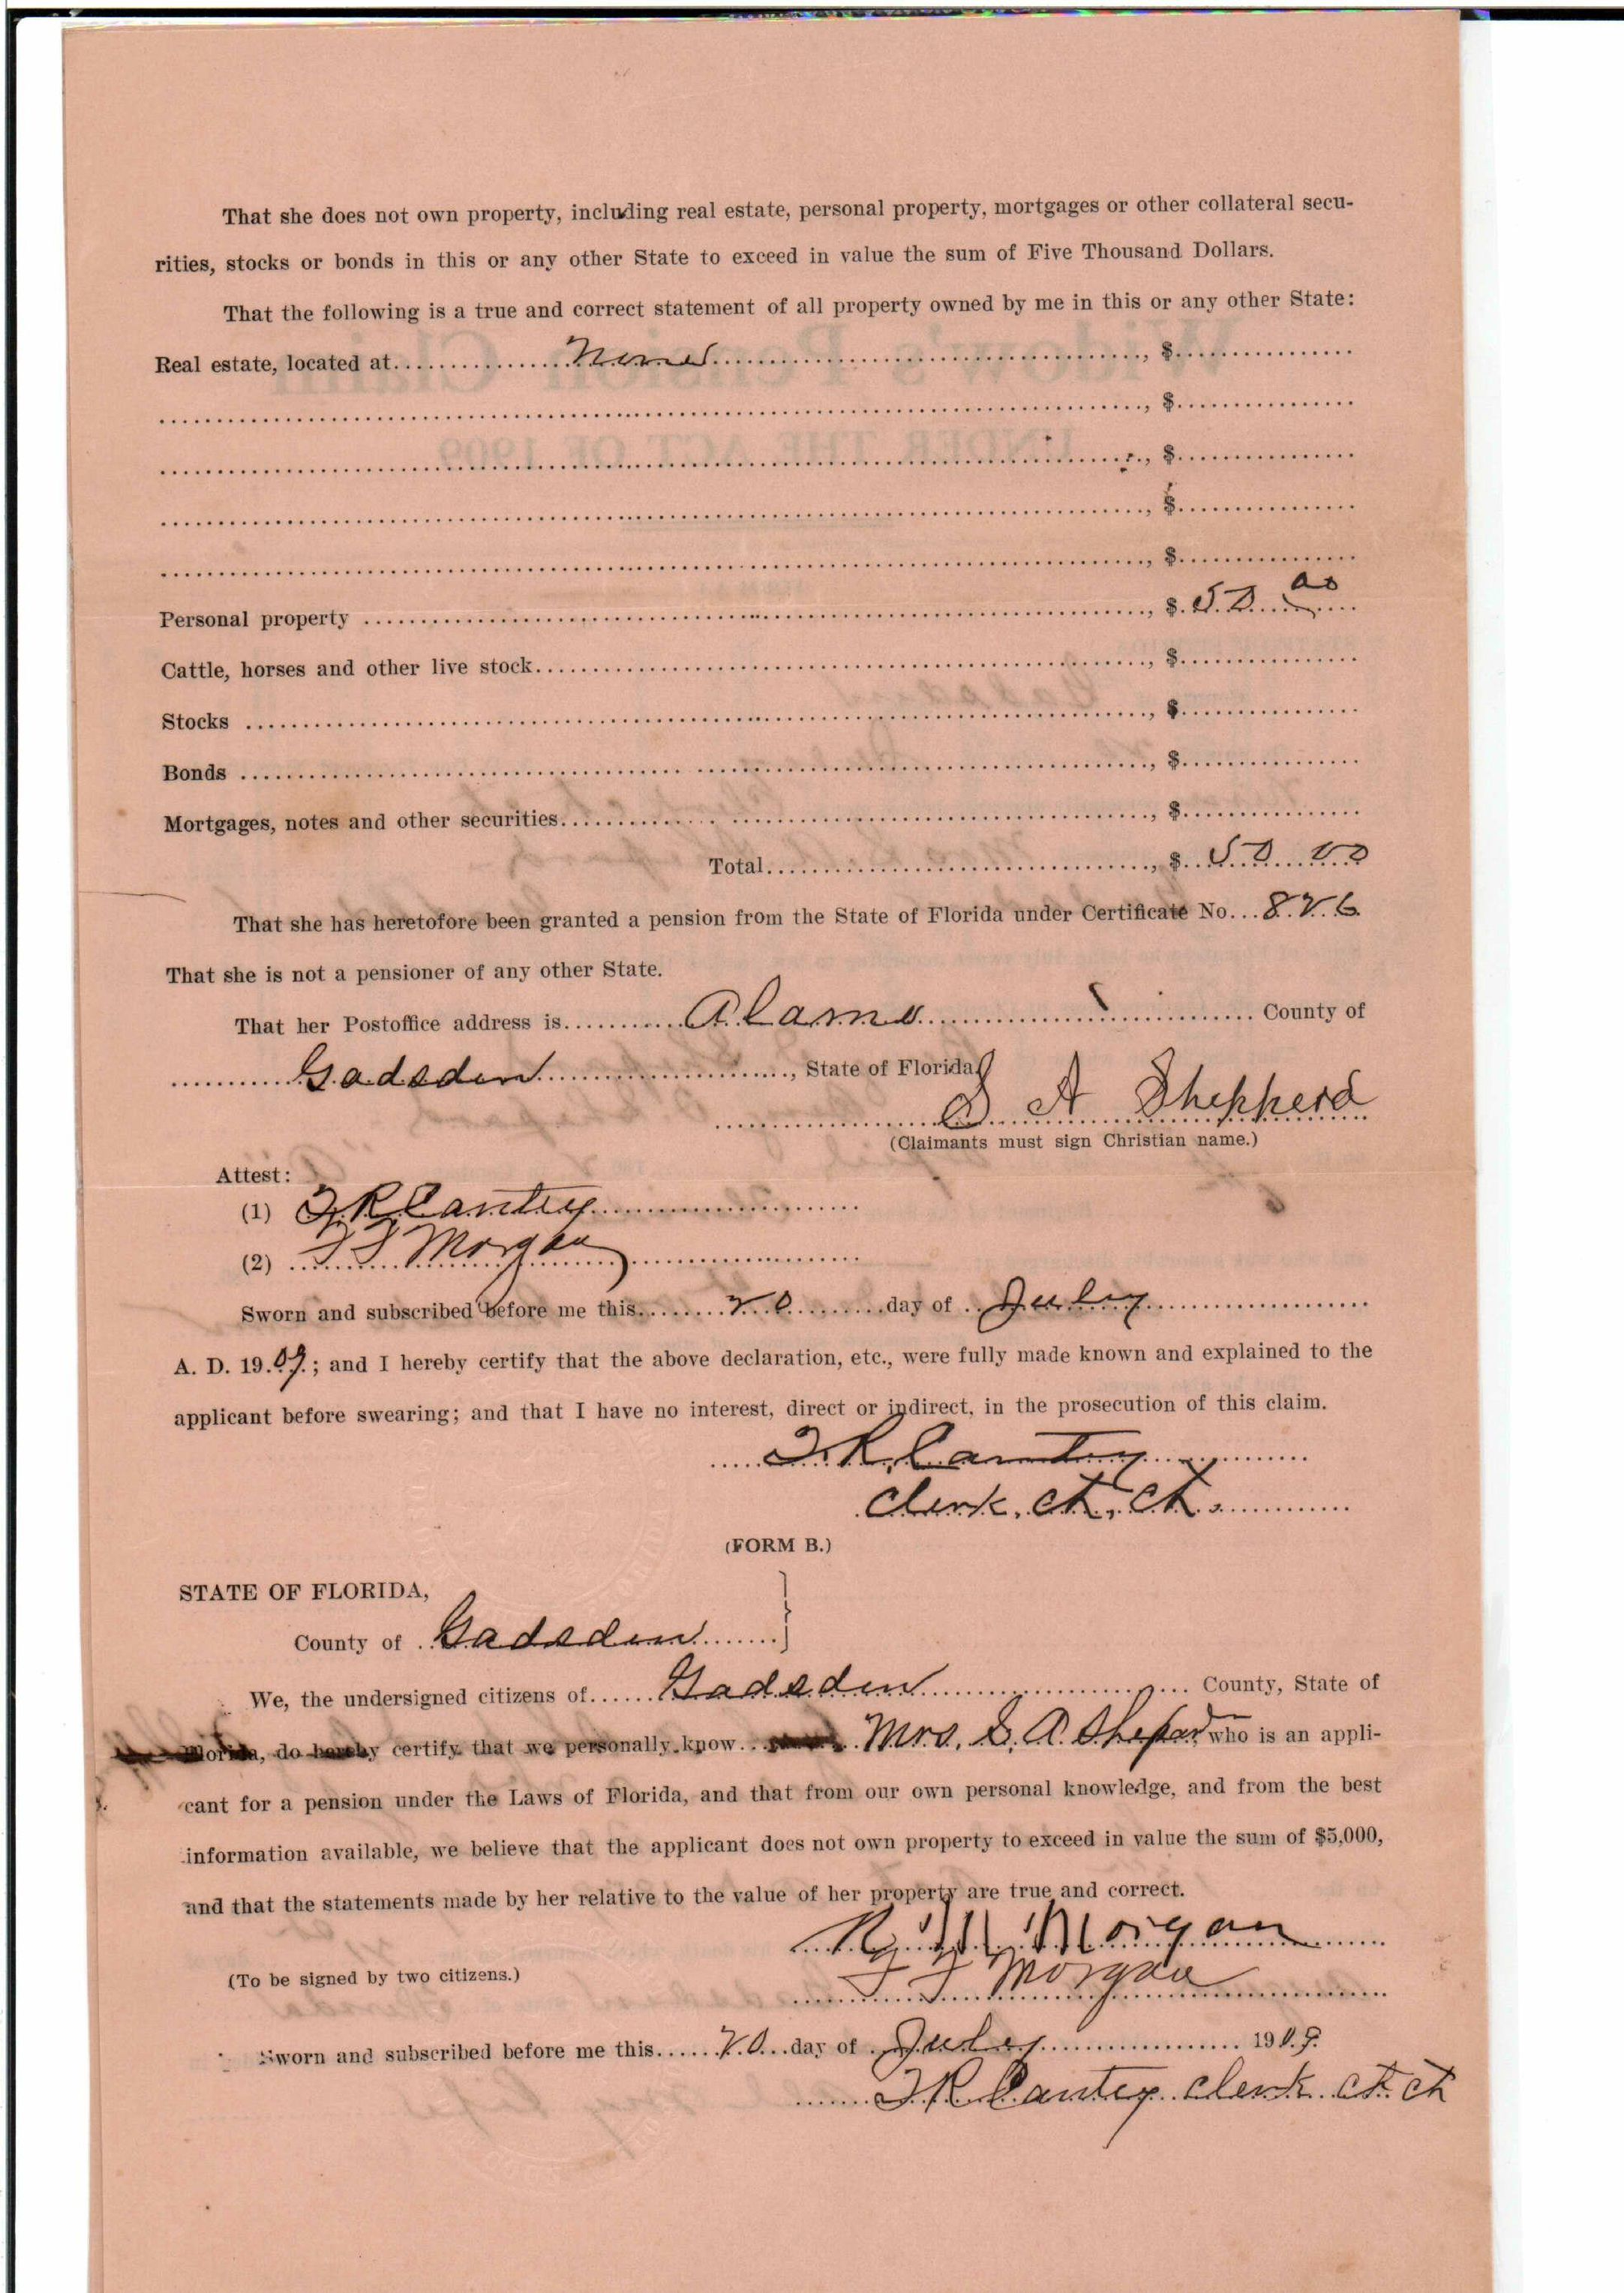 That she does not own property, including real estate, personal property, mortgages or other collateral secu-
rities, stocks or bonds in this or any other State to exceed in value the sum of Five Thousand Dollars.
That the following is a true and correct statement of all property owned by me in this or any other State:
Real estate, located at None, $
, $
, $
, $
, $
Personal property, $ 50 00
Cattle, horses and other live stock, $
Stocks, $
Bonds, $
Mortgages, notes and other securities, $
Total, $ 50 00
That she has heretofore been granted a pension from the State of Florida under Certificate No. 826
That she is not a pensioner of any other State.
That her Postoffice address is Alamo County of
Gadsden, State of Florida
S A Shepperd
(Claimants must sign Christian name.)
Attest:
(1) Cantey
(2) Morgan
Sworn and subscribed before me this 20 day of July
A. D. 1909; and I hereby certify that the above declaration, etc., were fully made known and explained to the
applicant before swearing; and that I have no interest, direct or indirect, in the prosecution of this claim.
R. Cantey
Clerk, Ct, Ct.
(FORM B.)
STATE OF FLORIDA,
County of Gadsden
We, the undersigned citizens of Gadsden County, State of
Florida, do hereby certify that we personally know Mrs. S. A. Shepard who is an appli-
cant for a pension under the Laws of Florida, and that from our own personal knowledge, and from the best
information available, we believe that the applicant does not own property to exceed in value the sum of $5,000,
and that the statements made by her relative to the value of her property are true and correct.
Morgan
(To be signed by two citizens.)
Morgan
Sworn and subscribed before me this 20 day of July 1909.
R Cantey Clerk Ct. Ct